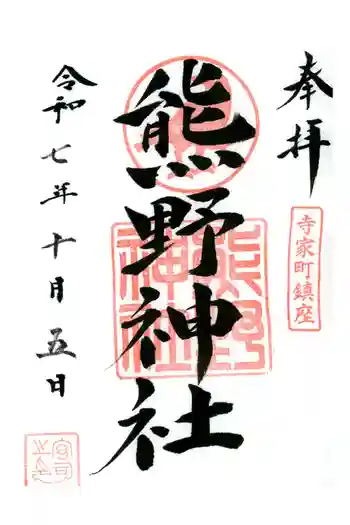 奉拝
寺家町鎮座
熊野神社
熊野
神社
令和七年十月五日